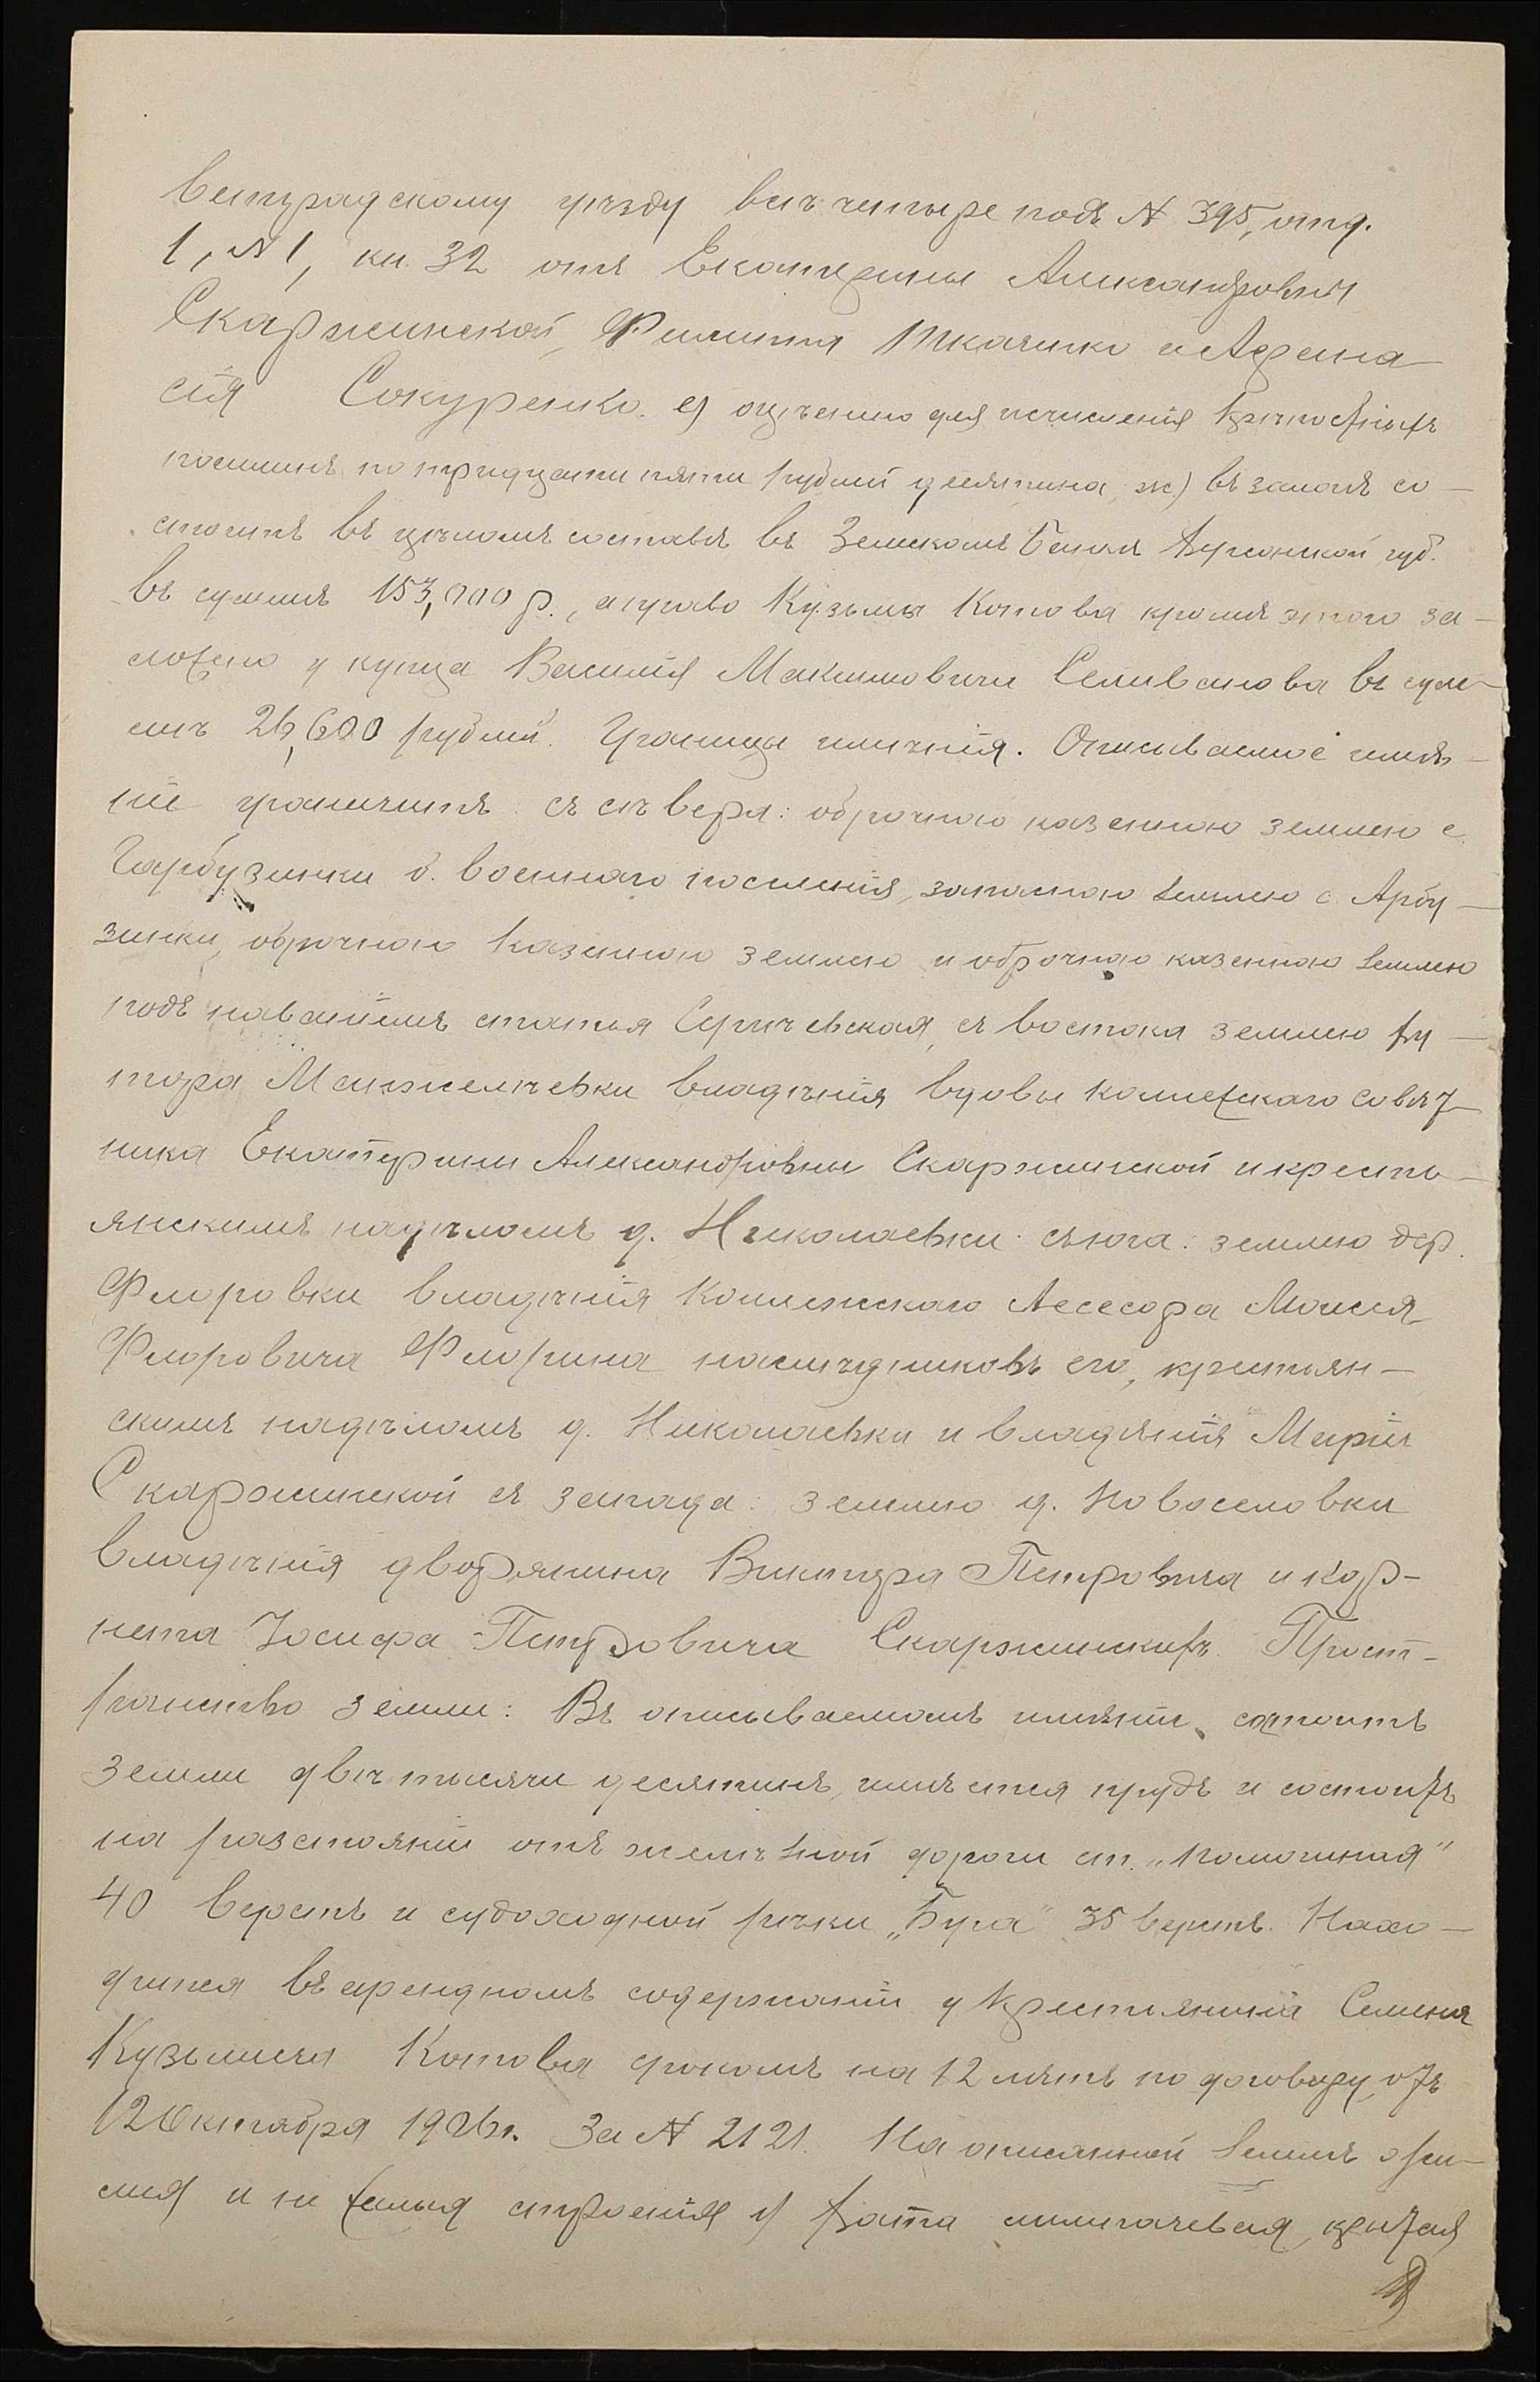 ветградскому уѣзду въ четыре подъ № 395, отд.
1, № 1, кн. 32 отъ Екатерины Александровны
Скаржинской, Филиппа Ткаченко и Афана
сія Сокуренко. е) оцѣнено для исчисленія крѣпостныхъ
пошлинъ по тридцати пяти рублей десятина, ж) въ залогѣ со-
стоитъ въ цѣломъ составѣ въ Земскомъ Банкѣ Херсонской губ.
въ суммѣ 153,000 р., а право Кузьмы Котова кромѣ этого за-
ложено у купца Василія Максимовича Селиванова въ сум-
мѣ 26,600 рублей. Границы имѣнія. Описываемое имѣ-
ніе граничитъ съ сѣвера: оброчною казенною землею с.
Гарбузинки б. военнаго поселенія, запасною землею с. Арбу-
зинки, оброчною казенною землею и оброчною казенною землею
подъ названіемъ статья Сергѣевская, съ востока землею ху-
тора Манжелѣевки владѣнія вдовы коллежскаго совѣт-
ника Екатерины Александровны Скаржинской и кресть-
янскимъ надѣломъ д. Николаевки съ юга: землею дер.
Флоровки владѣнія Коллежскаго Асесора Моисея
Флоровича Флорина наслѣдниковъ его, крестьян-
скимъ надѣломъ д. Николаевки и владѣнія Маріи
Скаржинской съ запада: землею д. Новоселовки
владѣнія дворянина Виктора Петровича и Кор-
нета Іосифа Петровича Скаржинскихъ. Прост-
ранство земли: Въ описываемомъ имѣніи состоитъ
земли двѣ тысячи десятинъ, имѣется прудъ и состоитъ
на разстояніи отъ желѣзной дороги ст. „Помошная"
40 верстъ и судоходной рѣчки „Буга" 35 верстъ. Нахо-
дится въ арендномъ содержаніи у крестьянина Семена
Кузьмича Котова срокомъ на 12 лѣтъ по договору отъ
12 Октября 1906 г. За № 2121. На описанной землѣ жи-
лыя и не жилыя строенія 1) хата лимпачевая, крытая